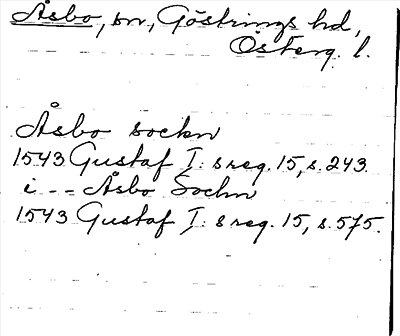 Åsbo, sn, Göstrings hd,
Österg. l.
Åsbo sockn
1543 Gustaf I: s reg. 15, s. 243.
i - - Åsbo Sockn
1543 Gustaf I: s reg. 15, s. 575.